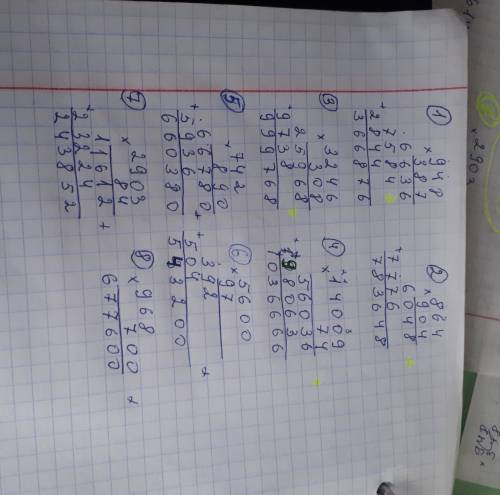 × 290
1
948
× 387
6636
+ 7584
2844
366876
2
864
× 907
6048
+ 7776
783648
3
3246
× 308
25968
+ 9738
999768
4
14009
× 74
56036
+ 98063
1036666
5
742
× 890
66780
+ 5936
660380
6
5600
× 97
392
+ 504
543200
7
2903
× 84
11612
+ 23224
243852
8
968
× 700
677600